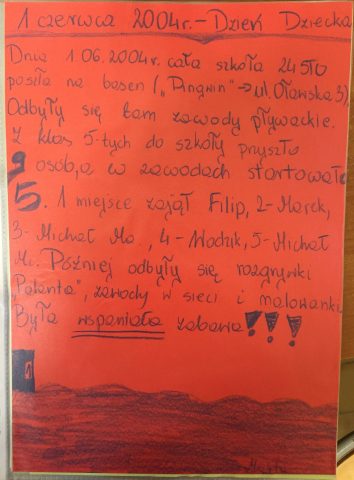 1 czerwca 2004r. - Dzień Dziecka
Dnia 1.06.2004r. cała szkoła 24 STO
poszła na basen („Pingwin" → ul. Oławska 3),
Odbyły się tam zawody pływackie.
Z klas 5-tych do szkoły przyszło
9 osób, a w zawodach startowało
5. 1 miejsce zajął Filip, 2- Marek,
3- Michał Ma., 4- Wodzik, 5- Michał
Mi. Później odbyły się rozgrywki
„Palanta", zawody w sieci i malowanki.
Była wspaniała zabawa!!!
1